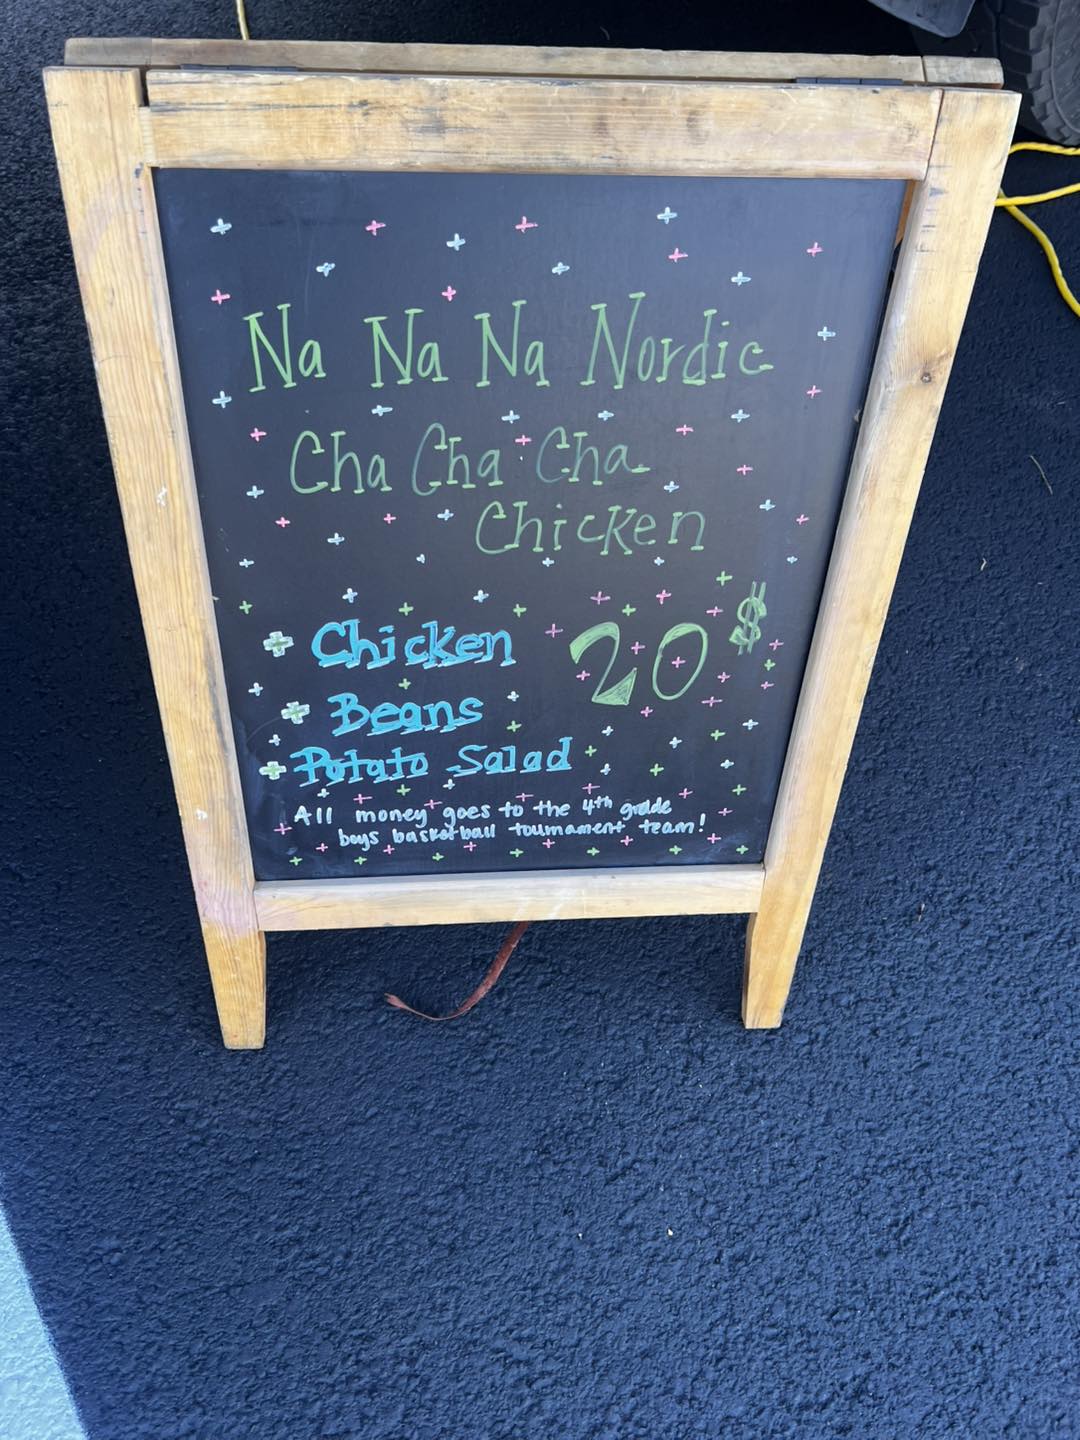 Na Na Na Nordic
Cha Cha Cha
Chicken
Chicken 20$
Beans
Potato Salad
All money goes to the 4th grade
boys basketball tournament team!